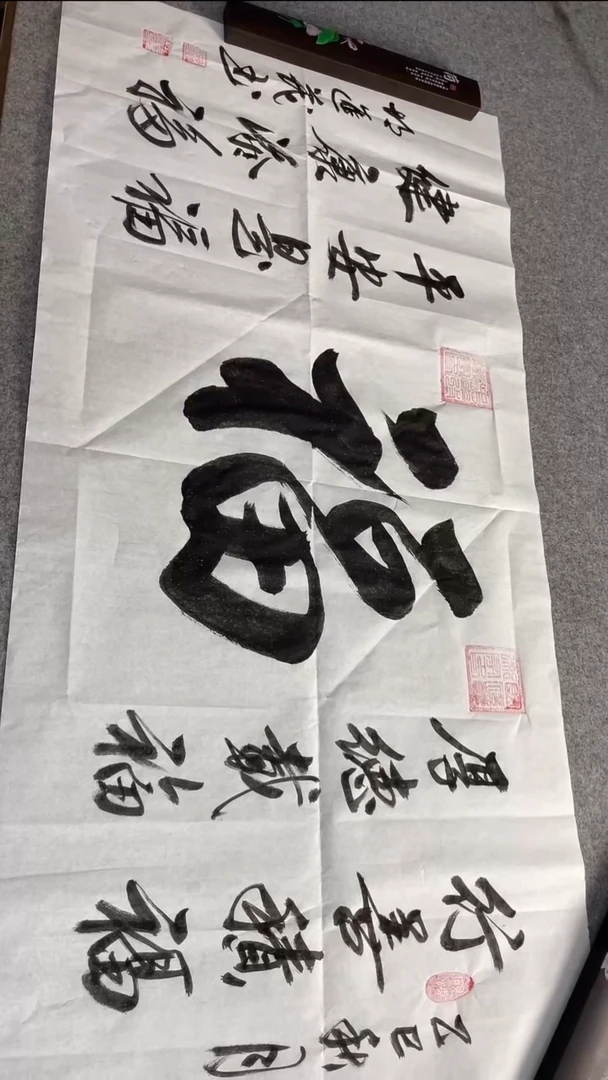 乙巳秋月
行善積福
厚德載福
福
平安是福
健康添福